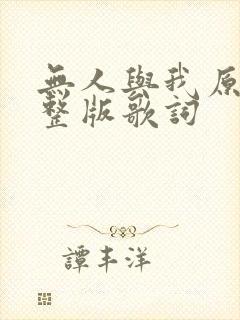 無人與我 原
整版歌詞
譚丰洋